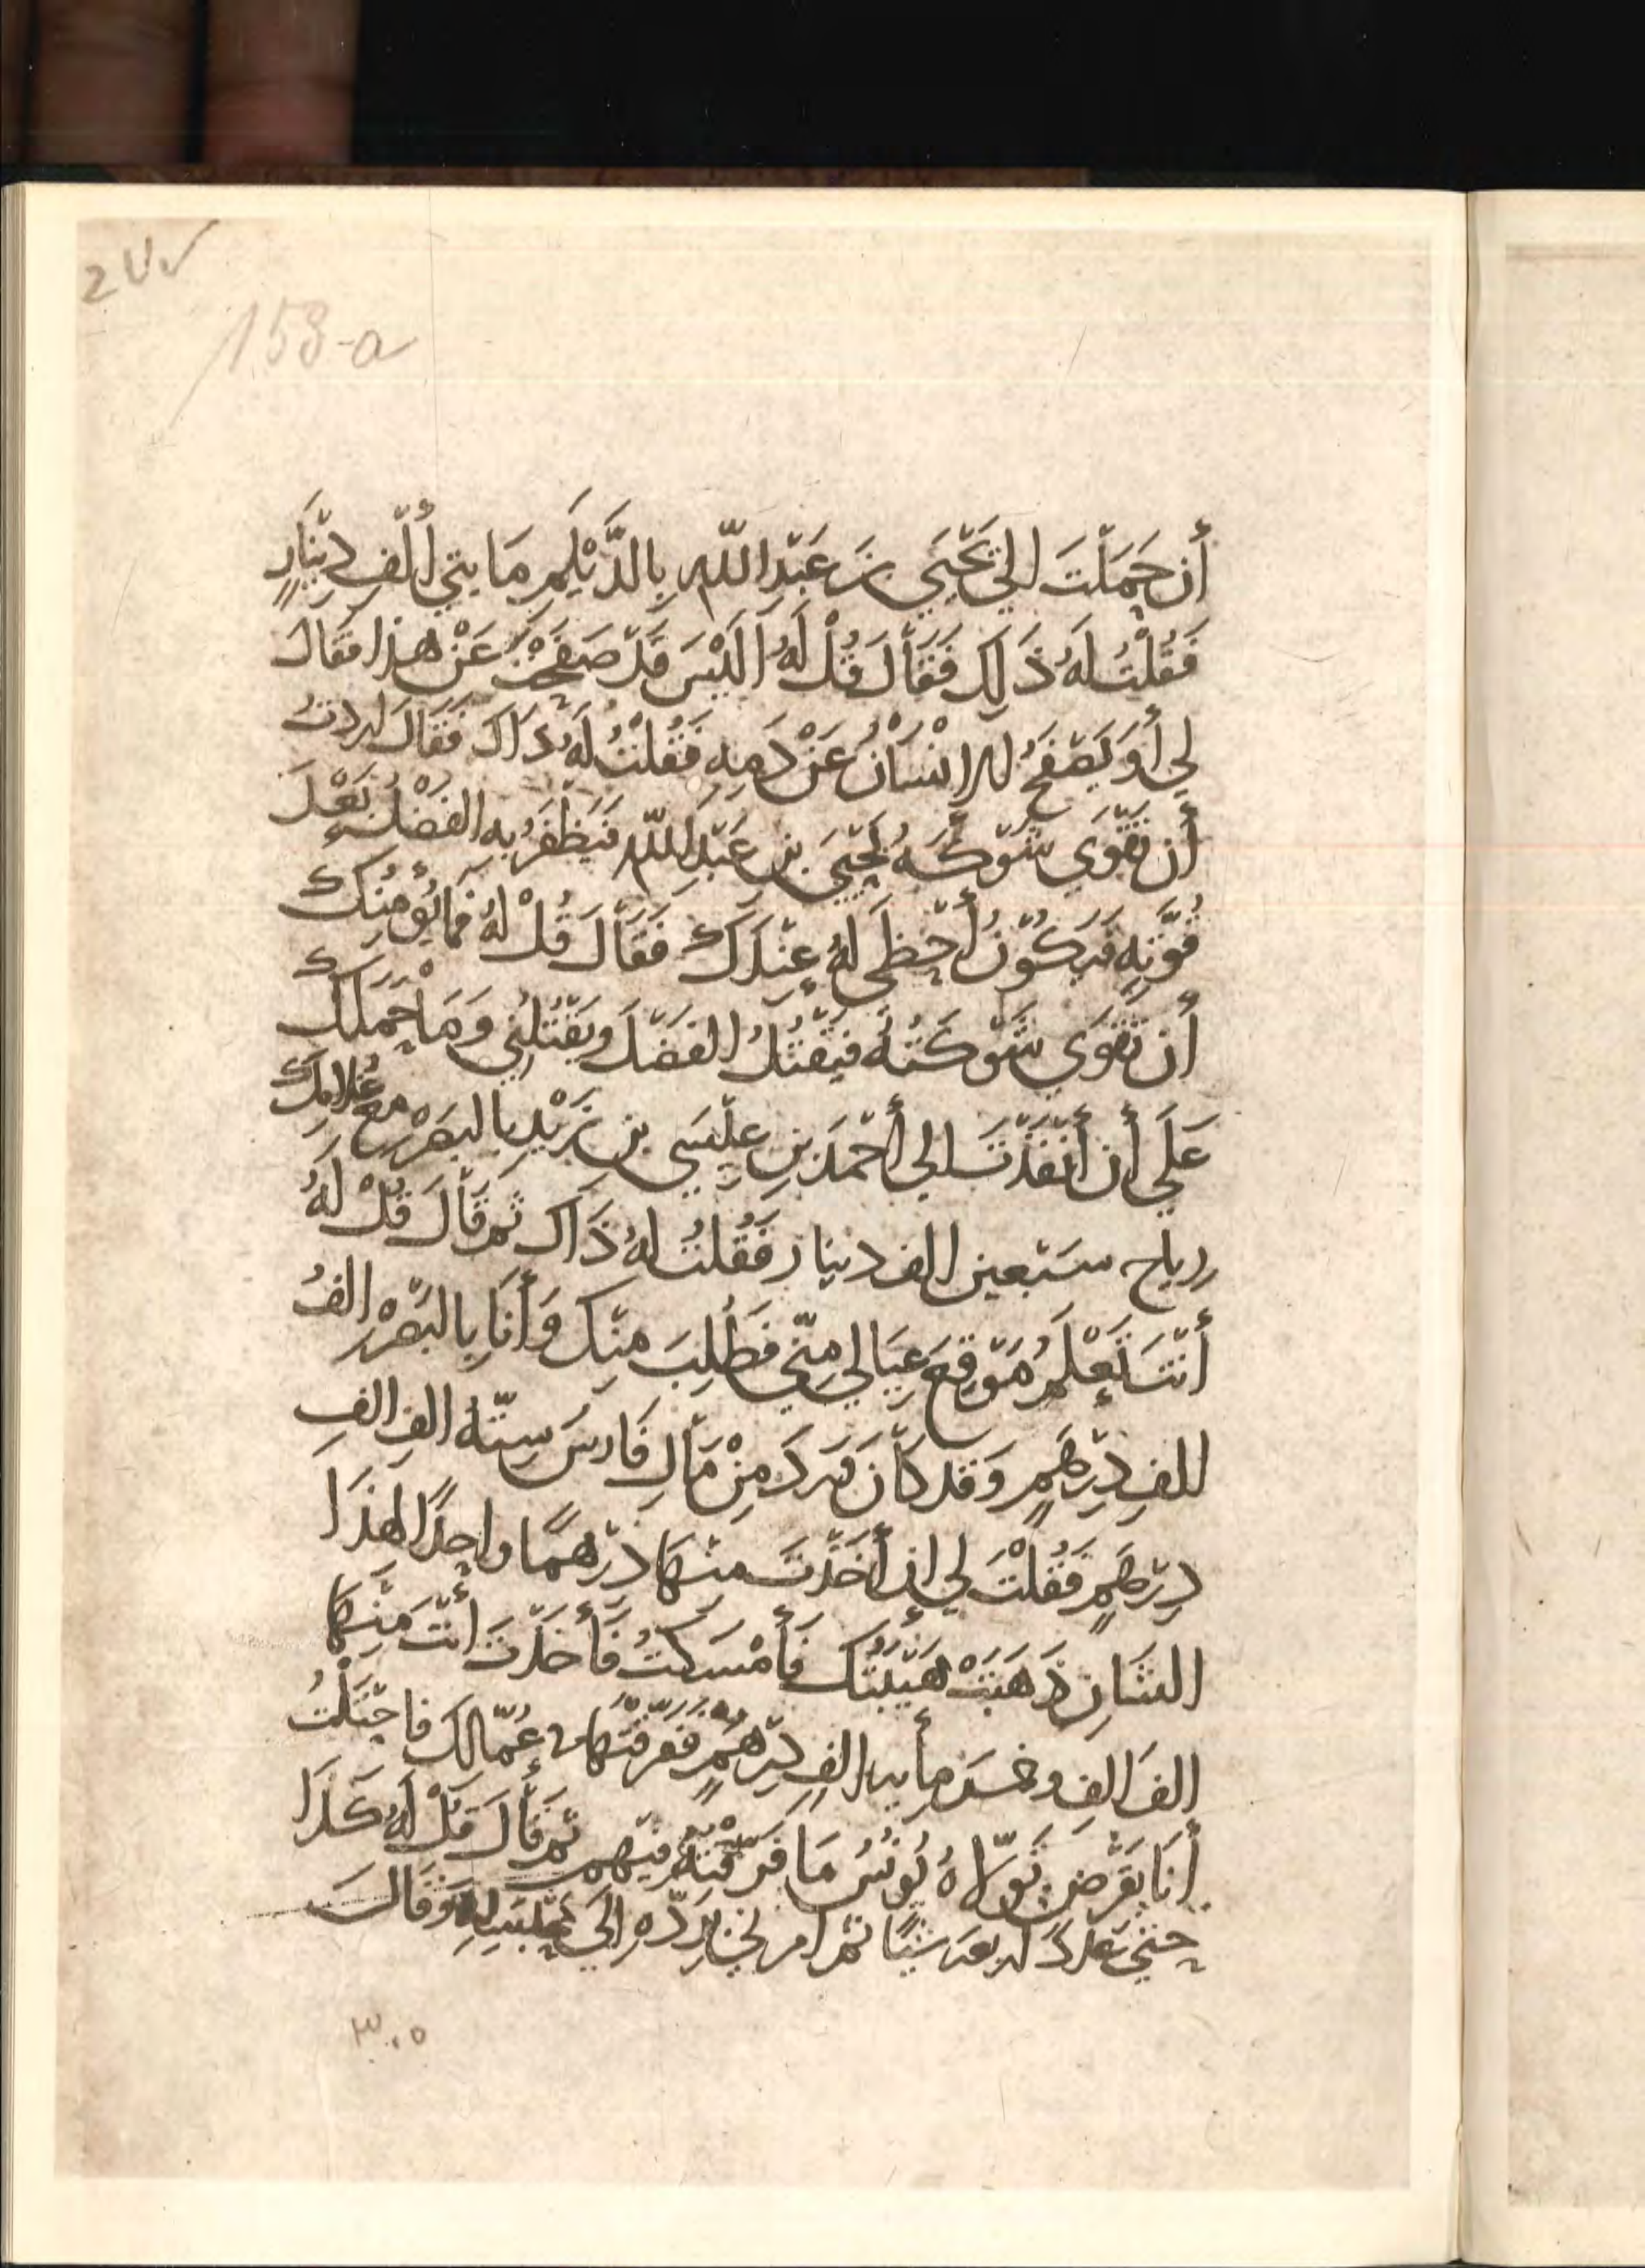 2UV
153-a
أَن حَمَلْتَ الي يَحْيَي بنَ عَبْدِ اللّهِ بِالدَّيْلَمِ مَايتي أَلْفِ دِيْنَارٍ
فَقُلْتُ لَهُ ذَلِكَ فَقَالَ قُلْ لَهُ اَلَيْسَ قَدْ صَفَحْتَ عَنْ هذا فقَالَ
لي أَوَ يَصْفَحُ الاِنْسَانُ عَنْ دَمِهِ فَقُلْتُ لَهُ ذَاكَ فَقَالَ اردتُ
أَن تقْوَي شَوْكَهُ يَحْيَيَ بنِ عَبْدِ اللّهِ فَيَظْفَرَ بِهِ الفَضْلُ بَعْدَ
قُوَّتِهِ فَيَكُوْنُ أَحْظَي لَهُ عِنْدَكَ فَقَالَ قُلْ لَهُ فَمَا يُؤْمِنُكَ
أَن تَقْوَي شَوْكَتُهُ فَيَقْتُلُ الفَضْلَ وَيَقْتُلُنِي وَمَا حَمَلَكَ
عَلَي أَن أَنْفَذْتَ الي أَحْمَدَ بنِ عِيْسَي بنِ زَيْدٍ بالبَصْرَهِ مع غُلامِكَ
رباح سَبْعين الف دينار فَقُلتُ لَهُ ذَاكَ ثم قَالَ قُلْ لَهُ
أَنْتَ تَعْلَمُ مَوْقِعَ عِيَالي مِنّي فَطَلبَ منكَ وَأَنَا بالبَصْرَه الفُ
الفِ دِرْهَمٍ وَقد كَانَ وَرَدَ مِنْ مَالِ فَارسَ سِتّهُ الفِ الفِ
دِرْهَمٍ فَقُلْتَ لي إِن أَخَذْتَ منهَا دِرْهَمًا واحِدًا لهذَا
الشَانِ ذَهَبَتْ هَيْبَتُكَ فَأَمْسَكتُ فَأَخَذْتَ أَنْتَ مِنْهَا
الفَ الفِ وخمسَ مأيه الفِ دِرْهَمٍ فَفَرَّقْتَهَا في عُمّالِكَ فاحْتَلْتُ
أَنَا بقَرْضٍ تَوَلّاهُ يُونُسُ مَا فَرَّقْتُهُ فيهم ثم قَالَ قُلْ لَهُ كَذَا
حتي عَدَّدَ اربعه شيًا ثم امرني بِرَدّهِ الَي مَحْبَسِهِ وَقَالَ
٣٠٥